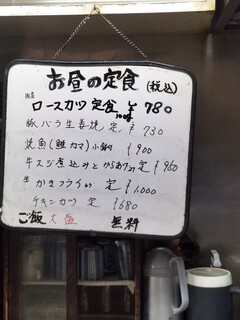 お昼の定食 (税込)
国産
ロースカツ定食 ¥780
豚バラ生姜焼 定 ¥730
焼魚(鮭カマ)小鉢 ¥900
牛スジ煮込みとからあげ 定 ¥960
生 かきフライ 定 ¥1,000
チキンカツ 定 ¥680
ご飯 大盛 無料